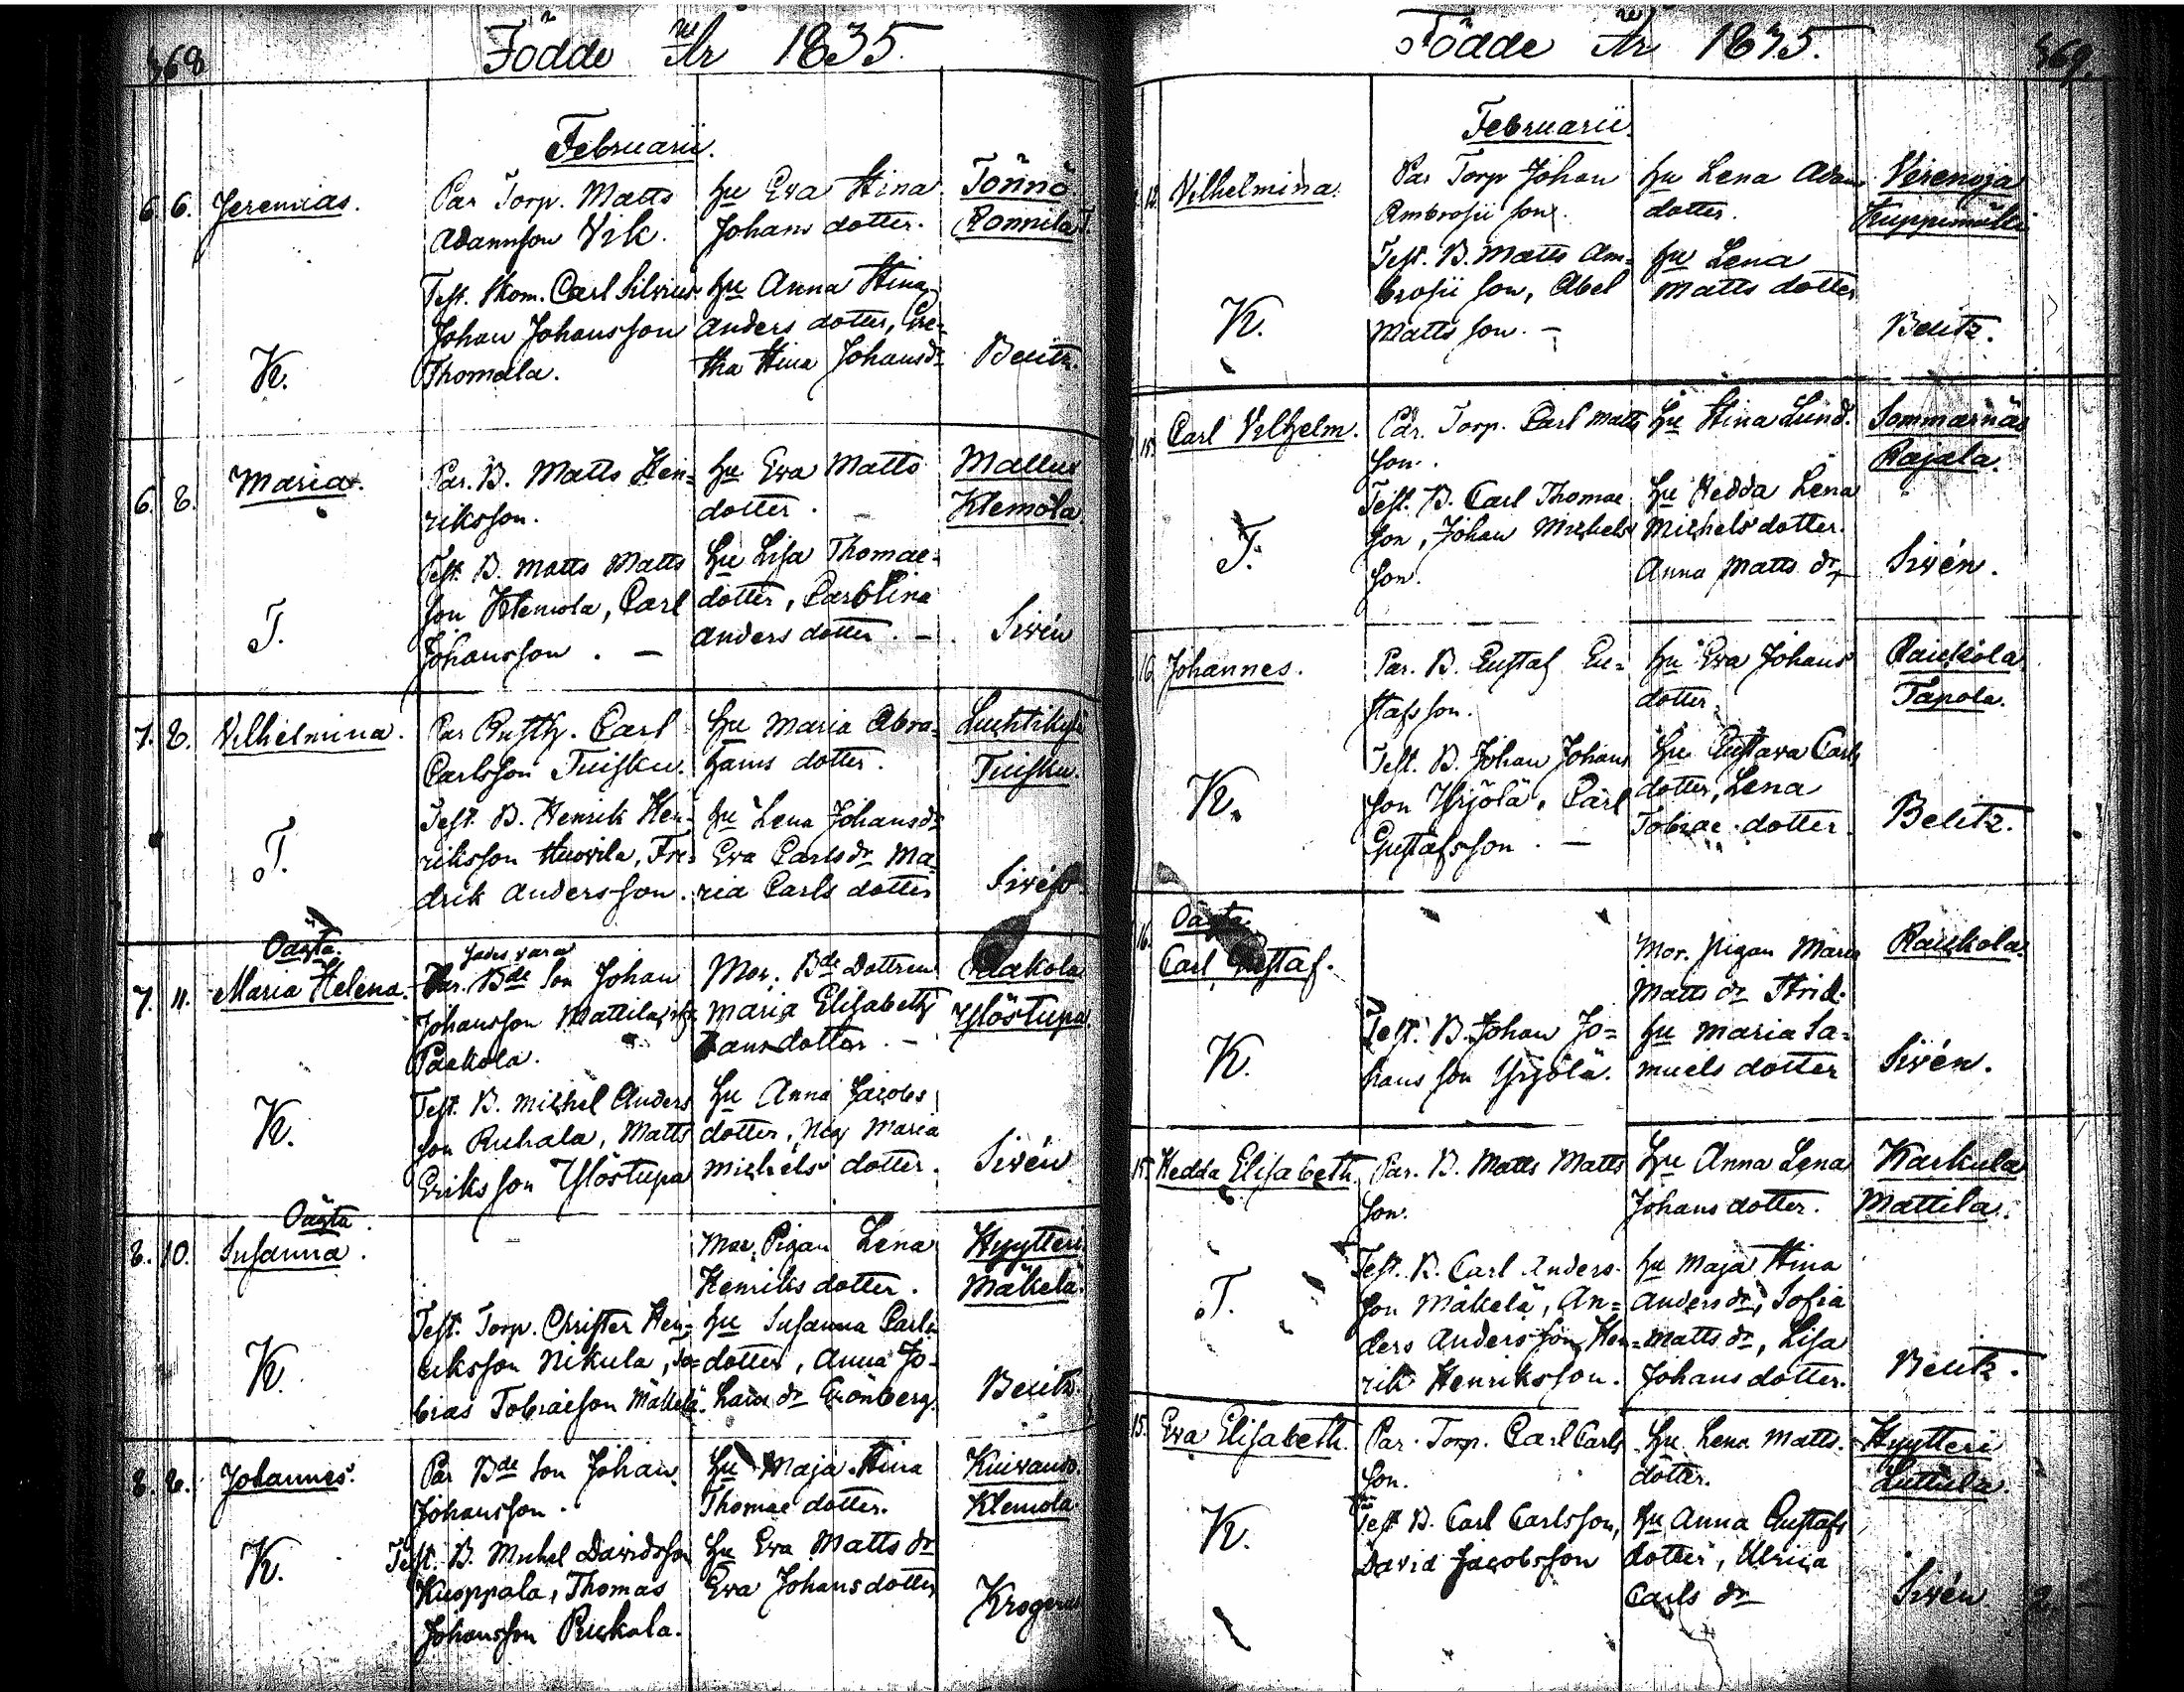 368
Födde År 1835.
Februarii.
6. 6. Jeremias. Par Torp. Matts Hu Eva Stina Tönnö
Adamsson Vik. Johans dotter. Ronnila T.
Test. Skom. Carl Silvius Hu Anna Stina
Johan Johansson Anders dotter, Gre=
K. Thomala. tha Stina Johansdr Beutz.
6. 8. Maria. Par. B. Matts Hen= Hu Eva Matts Mallus
riksson. dotter. Klemola.
Test. B. Matts Matts Hu Lisa Thomae=
son Klemola, Carl dotter, Carolina
T. Johansson. — Anders dotter. — Sivén
7. 8. Vilhelmina. Par Carl Hu Maria Abra=
Carlsson Tuisku. hams dotter. Tuisku.
Test. B. Henrik Hen= Hu Lena Johansdr
T. riksson Huovila, Fre= Eva Carlsdr Ma=
drik Andersson. ria Carls dotter Sivén.
Oägta.
7. 11. Maria Helena. Par. Bde Son Johan Mor. Bde Dottren Paakola
Johansson Mattila Maria Elisabeth Ylöstupa.
Paakola. dotter. —
Test. B. Michel Anders Hu Anna Jacobs
K. son Ruhala, Matts dotter, Maria
Eriksson Ylöstupa Michels dotter. Sivén
Oägta.
8. 10. Susanna. Mor. Pigan Lena Hyytteri
Henriks dotter. Mäkelä.
Test. Torp. Christer Hen= Hu Susanna Carls
K. riksson Nikula, To= dotter, Anna Jo=
bias Tobiaeson Mäkelä. hans dr Grönberg. Beutz.
8. Johannes. Par Bde Son Johan Hu Maja Stina
Johansson. Thomae dotter. Klemola.
K. Test. B. Michel Davidsson Hu Eva Matts dr
Kuoppala, Thomas Eva Johansdotter
Johansson Ruskala. Krogerus
Födde År 1835. 369.
Februarii.
12. Vilhelmina. Par Torp Johan Hu Lena Adams
Ambrosii son. dotter.
Test. B. Matts Am= Hu Lena
K. brosii son, Abel Matts dotter
Matts son. — Beutz.
Carl Vilhelm. Par. Torp. Carl Matts Hu Stina Lund. Sommarnäs
son. Rajala.
Test. B. Carl Thomae Hu Hedda Lena
T. son, Johan Michels Michels dotter.
son. Anna Matts dr Sivén.
16. Johannes. Par. B. Gustaf Gu= Hu Eva Johans Raukola
stafsson. dotter. Tapola.
Test. B. Johan Johans Hu Gustava Carls
K. son Yrjölä, Carl dotter, Lena
Gustafsson. — Tobiae dotter. Beutz.
Oägta
16. Carl Gustaf. Mor. Pigan Maria Raukola.
Matts dr Strid.
Test. B. Johan Jo= Hu Maria Sa=
K. hans son Yrjölä. muels dotter Sivén.
15. Hedda Elisabeth. Par. B. Matts Matts Hu Anna Lena Karkula
son. Johans dotter. Mattila.
Test. B. Carl Anders= Hu Maja Stina
T. son Mäkelä, An= Anders dr, Sofia
ders Andersson, Hen= Matts dr, Lisa
rik Henriksson. Johans dotter. Beutz.
15. Eva Elisabeth. Par. Torp. Carl Carls Hu Lena Matts Hyytteri
son. dotter. Luttula.
K. Test. B. Carl Carlsson, Hu Anna Gustafs
David Jacobsson dotter, Ulrica
Carls dr Sivén